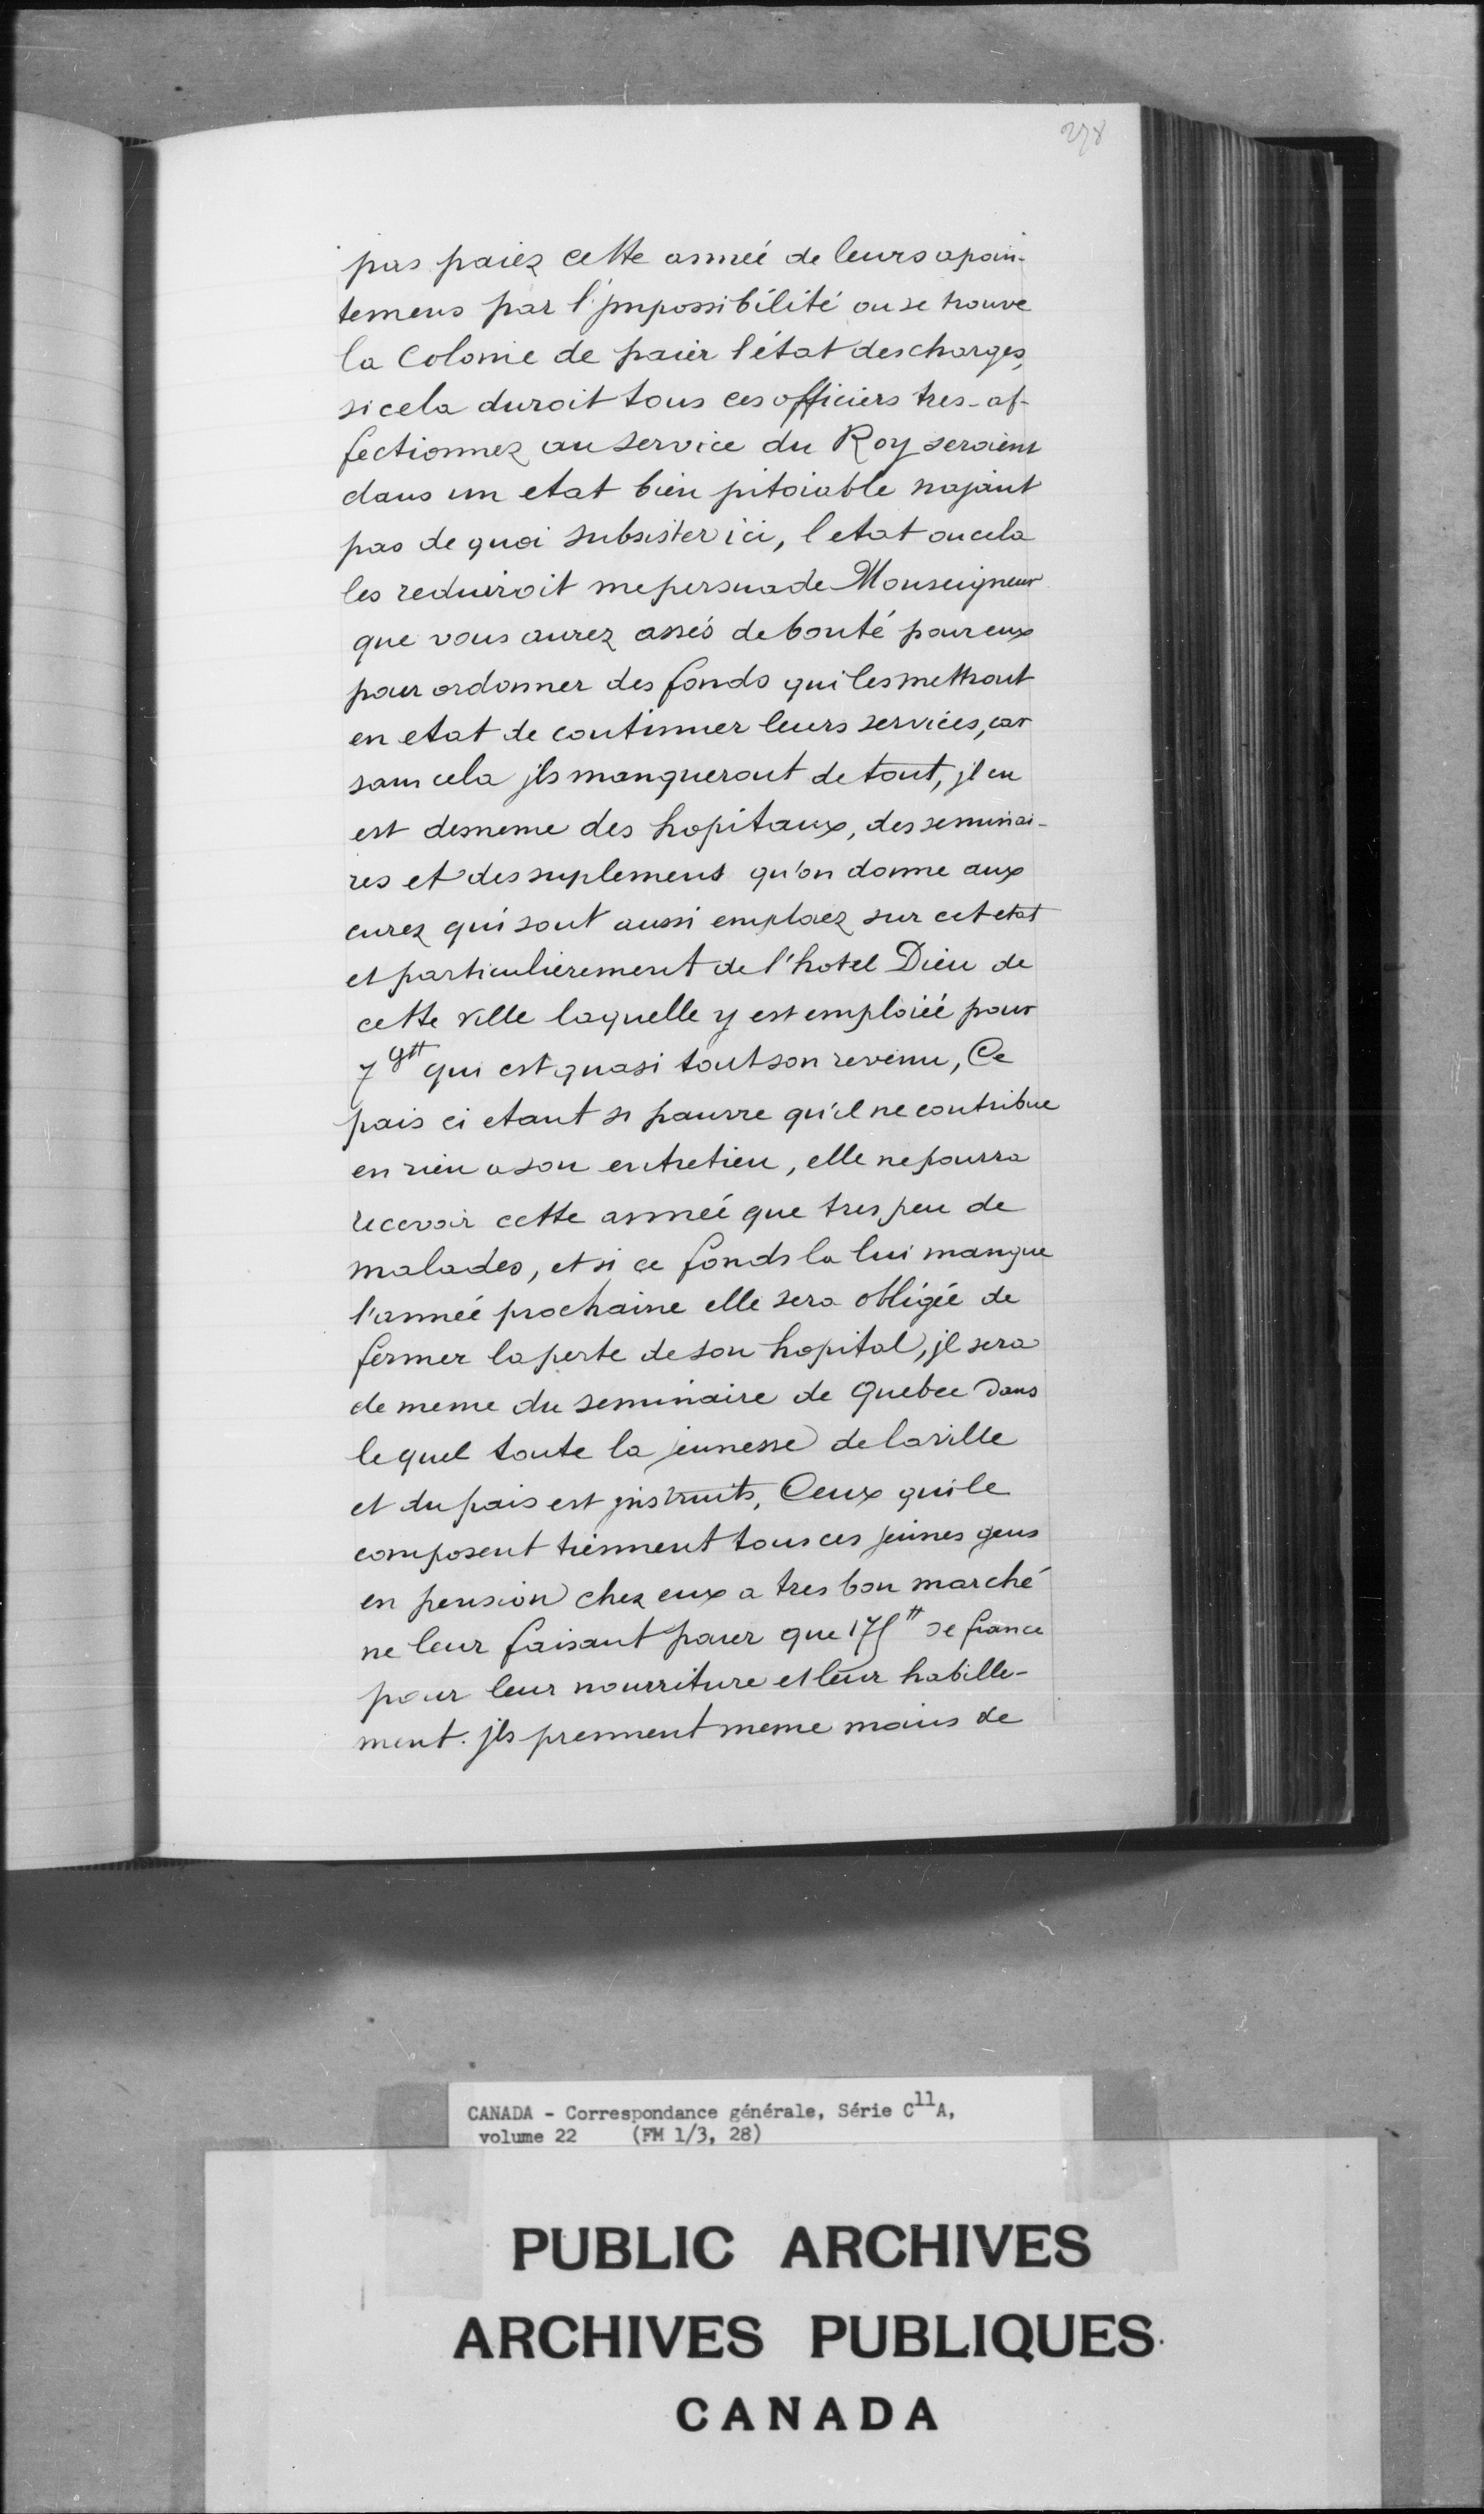 278
pas paiez cette année de leurs apoin-
temens par l'jmpossibilité ou se trouve
la Colonie de paier l'état descharges,
si cela duroit tous ces officiers tres-af-
fectionnez au service du Roy seroient
dans un etat bien pitoiable najant
pas de quoi subsister ici, l etat ou cela
les reduiroit me persuade Monseigneur
que vous aurez assés de bonté pour eux
pour ordonner des fonds qui les mettront
en etat de continuer leurs services, car
sans cela jls manqueront de tout, jl en
est demême des hopitaux, des seminai-
res et des suplemens qu'on donne aux
curez qui sont aussi emploiez sur cet etat
et particulierement de l'hotel Dieu de
cette ville laquelle y est emploiée pour
7 qui est quasi tout son revenu, Ce
pais ci etant si pauvre qu'il ne contribue
en rien a son entretien, elle ne pourra
recevoir cette année que tres peu de
malades, et si ce fonds la lui manque
l'année prochaine elle sera obligée de
fermer la porte de son hopital, jl sera
de meme du seminaire de Quebec dans
lequel toute la jeunesse de la ville
et du pais est jnstruits, Ceux qui le
composent tiennent tous ces jeunes gens
en pension chez eux a tres bon marché
ne leur faisant paier que 175tt de france
pour leur nourriture et leur habille-
ment. jls prennent meme moins de
CANADA - Correspondance générale, Série C11A,
volume 22 (FM 1/3, 28)
PUBLIC ARCHIVES
ARCHIVES PUBLIQUES
CANADA